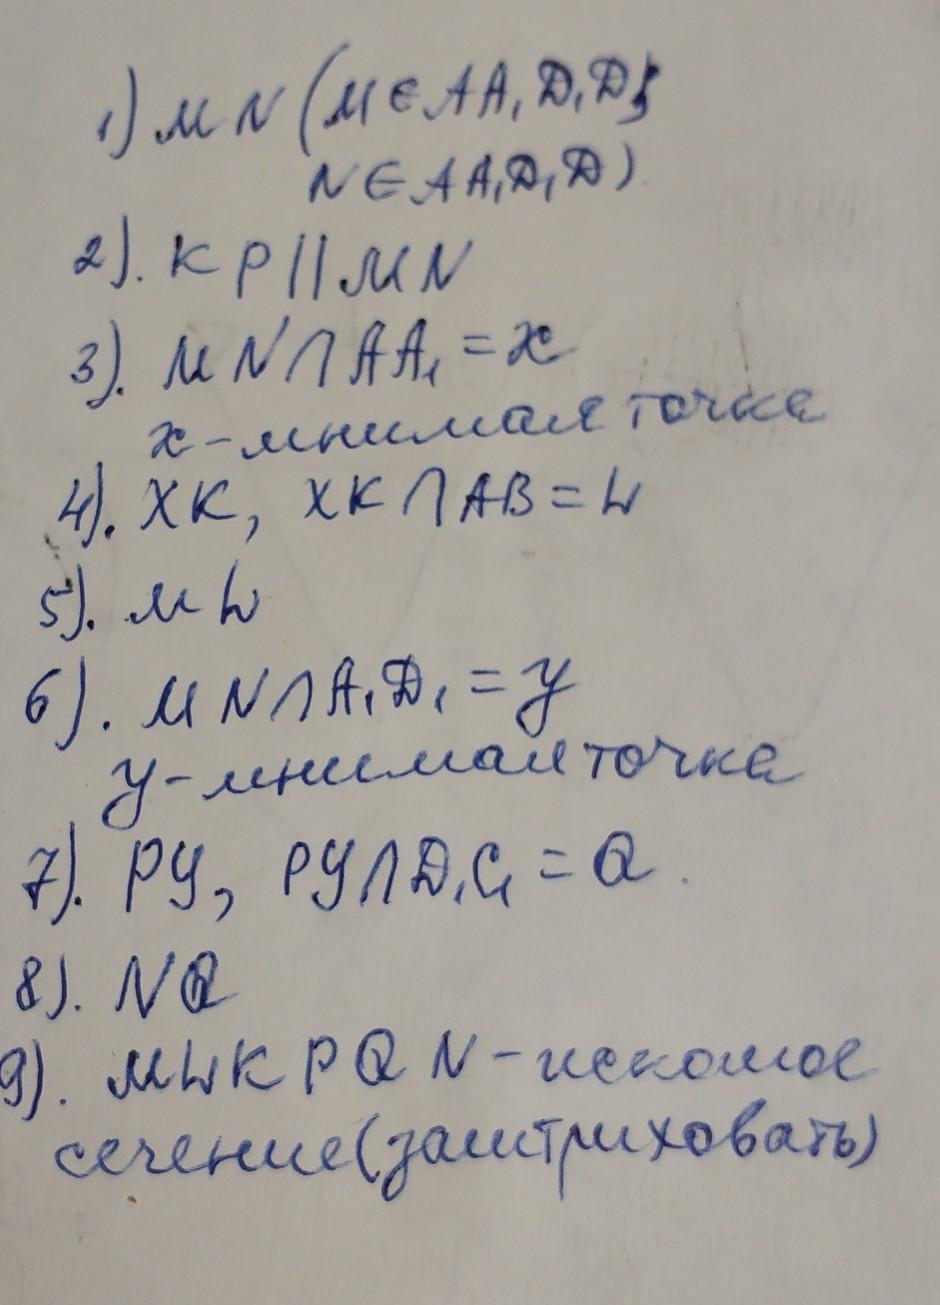 1) MN (M∈AA₁D₁D;
N∈AA₁D₁D)
2). KP || MN
3). MN∩AA₁ = x
x - мнимая точка
4). XK, XK∩AB = L
5). ML
6). MN∩A₁D₁ = y
y - мнимая точка
7). PY, PY∩D₁C₁ = Q.
8). NQ
9). MLKPQN - искомое
сечение (заштриховать)